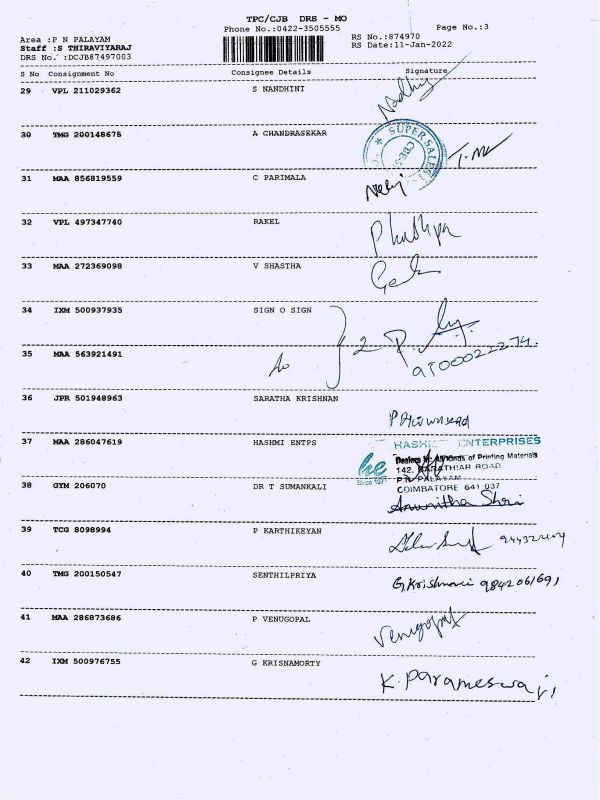 TPC/CJB DRS - MO
Phone No.:0422-3505555
Page No.:3
Area :P N PALAYAM
Staff :S THIRAVIYARAJ
DRS No. :DCJB87497003
RS No.:874970
RS Date:11-Jan-2022
S No Consignment No Consignee Details Signature
29 VPL 211029362 S NANDHINI
30 TMG 200148675 A CHANDRASEKAR
SUPER SALES
31 MAA 856819559 C PARIMALA
32 VPL 497347740 RAKEL
33 MAA 272369098 V SHASTHA
34 IXM 500937935 SIGN O SIGN
35 MAA 563921491
36 JPR 501948963 SARATHA KRISHNAN
37 MAA 286047619 HASHMI ENTPS
HASHMI ENTERPRISES
he Dealers in: All Kinds of Printing Materials
142, BARATHIAR ROAD
P.N. PALAYAM
COIMBATORE 641 037
38 GYM 206070 DR T SUMANKALI
Anunitha Shri
39 TCG 8098994 P KARTHIKEYAN
40 TMG 200150547 SENTHILPRIYA
41 MAA 286873686 P VENUGOPAL
Venugopal
42 IXM 500976755 G KRISNAMORTY
K. Parameswari